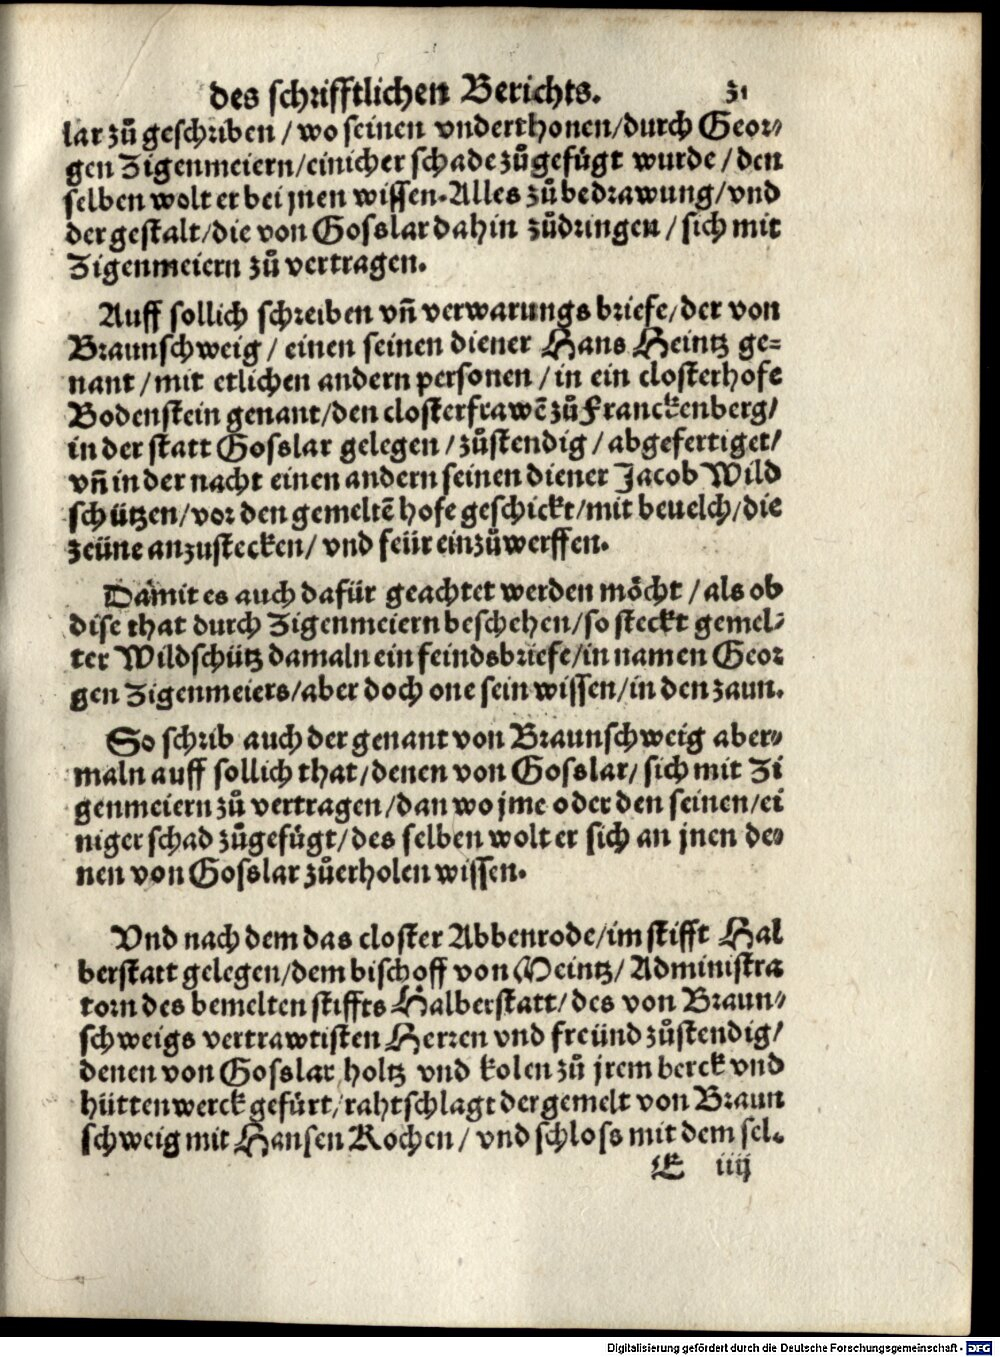 des schrifftlichen Berichts. 31
lar zů geschriben / wo seinen vnderthonen/durch Geor⸗
gen Zigenmeiern/einicher schade zůgefůgt wurde / den
selben wolt er bei jnen wissen. Alles zů bedrawung/vnd
der gestalt/die von Gosslar dahin zůdringen / sich mit
Zigenmeiern zů vertragen.
Auff sollich schreiben vñ verwarungs briefe/der von
Braunschweig / einen seinen diener Hans Heintz ge=
nant / mit etlichen andern personen / in ein closterhofe
Bodenstein genant/den closterfrawẽ zů Franckenberg/
in der statt Gosslar gelegen / zůstendig / abgefertiget/
vñ in der nacht einen andern seinen diener Jacob Wild
schützen/vor den gemeltẽ hofe geschickt/mit beuelch/die
zeüne anzustecken/ vnd feür einzůwerffen.
Damit es auch dafür geachtet werden mőcht / als ob
dise that durch Zigenmeiern beschehen/so steckt gemel⸗
ter Wildschütz damaln ein feindsbriefe/in namen Geor
gen Zigenmeiers/aber doch one sein wissen/in den zaun.
So schrib auch der genant von Braunschweig aber⸗
maln auff sollich that/denen von Gosslar/ sich mit Zi
genmeiern zů vertragen/dan wo jme oder den seinen/ei
niger schad zůgefůgt/des selben wolt er sich an jnen de⸗
nen von Gosslar zůerholen wissen.
Vnd nach dem das closter Abbenrode/im stifft Hal
berstatt gelegen/dem bischoff von Meintz/ Administra
torn des bemelten stiffts Halberstatt/des von Braun⸗
schweigs vertrawtisten Herren vnd freünd zůstendig/
denen von Gosslar holtz vnd kolen zů jrem berck vnd
hüttenwerck gefürt/rahtschlagt der gemelt von Braun
schweig mit Hansen Kochen / vnd schloss mit dem sel⸗
E iiij
Digitalisierung gefördert durch die Deutsche Forschungsgemeinschaft - DFG